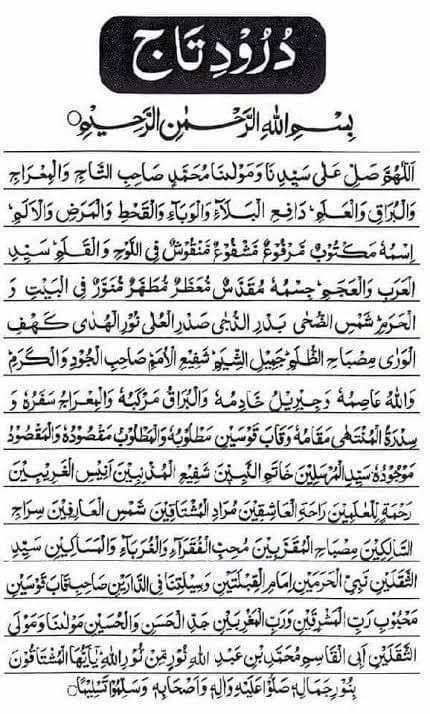 دُرُوْدِ تَاج
بِسْمِ اللهِ الرَّحْمٰنِ الرَّحِيْمِ
اَللّٰهُمَّ صَلِّ عَلٰى سَيِّدِنَا وَمَوْلٰنَا مُحَمَّدٍ صَاحِبِ التَّاجِ وَالْمِعْرَاجِ
وَالْبُرَاقِ وَالْعَلَمِ ؕ دَافِعِ الْبَلَآءِ وَالْوَبَاءِ وَالْقَحْطِ وَالْمَرَضِ وَالْاَلَمِ ؕ
اِسْمُهٗ مَكْتُوْبٌ مَّرْفُوْعٌ مَّشْفُوْعٌ مَّنْقُوْشٌ فِى اللَّوْحِ وَالْقَلَمِ ؕ سَيِّدِ
الْعَرَبِ وَالْعَجَمِ ؕ جِسْمُهٗ مُقَدَّسٌ مُّعَطَّرٌ مُّطَهَّرٌ مُّنَوَّرٌ فِى الْبَيْتِ وَ
الْحَرَمِ ؕ شَمْسِ الضُّحٰى بَدْرِ الدُّجٰى صَدْرِ الْعُلٰى نُوْرِ الْهُدٰى كَهْفِ
الْوَرٰى مِصْبَاحِ الظُّلَمِ ؕ جَمِيْلِ الشِّيَمِ ؕ شَفِيْعِ الْاُمَمِ ؕ صَاحِبِ الْجُوْدِ وَالْكَرَمِ ؕ
وَاللهُ عَاصِمُهٗ وَجِبْرِيْلُ خَادِمُهٗ وَالْبُرَاقُ مَرْكَبُهٗ وَالْمِعْرَاجُ سَفَرُهٗ وَ
سِدْرَةُ الْمُنْتَهٰى مَقَامُهٗ وَقَابَ قَوْسَيْنِ مَطْلُوْبُهٗ وَالْمَطْلُوْبُ مَقْصُوْدُهٗ وَالْمَقْصُوْدُ
مَوْجُوْدُهٗ سَيِّدِ الْمُرْسَلِيْنَ خَاتَمِ النَّبِيّٖنَ شَفِيْعِ الْمُذْنِبِيْنَ اَنِيْسِ الْغَرِيْبِيْنَ
رَحْمَةٍ لِّلْعٰلَمِيْنَ رَاحَةِ الْعَاشِقِيْنَ مُرَادِ الْمُشْتَاقِيْنَ شَمْسِ الْعَارِفِيْنَ سِرَاجِ
السَّالِكِيْنَ مِصْبَاحِ الْمُقَرَّبِيْنَ مُحِبِّ الْفُقَرَآءِ وَالْغُرَبَآءِ وَالْمَسَاكِيْنَ سَيِّدِ
الثَّقَلَيْنِ نَبِيِّ الْحَرَمَيْنِ اِمَامِ الْقِبْلَتَيْنِ وَسِيْلَتِنَا فِى الدَّارَيْنِ صَاحِبِ قَابَ قَوْسَيْنِ
مَحْبُوْبِ رَبِّ الْمَشْرِقَيْنِ وَرَبِّ الْمَغْرِبَيْنِ جَدِّ الْحَسَنِ وَالْحُسَيْنِ مَوْلٰنَا وَمَوْلَى
الثَّقَلَيْنِ اَبِى الْقَاسِمِ مُحَمَّدِ بْنِ عَبْدِ اللهِ نُوْرٍ مِّنْ نُّوْرِ اللهِ ؕ يٰاَيُّهَا الْمُشْتَاقُوْنَ
بِنُوْرِ جَمَالِهٖ صَلُّوْا عَلَيْهِ وَاٰلِهٖ وَاَصْحَابِهٖ وَسَلِّمُوْا تَسْلِيْمًا